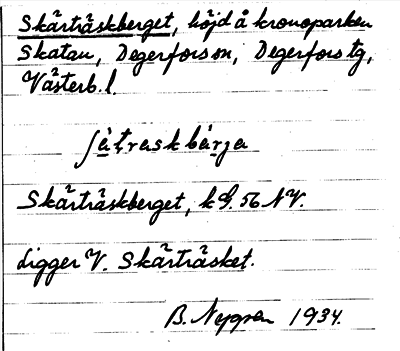 Skärträskberget, höjd å kronoparken
Skatan, Degerfors sn, Degerfors tg,
Västerb. l.
ʃä̀traskbärja
Skärträskberget, k G. 56 NV.
Ligger V. Skärträsket.
B. Nygren 1934.